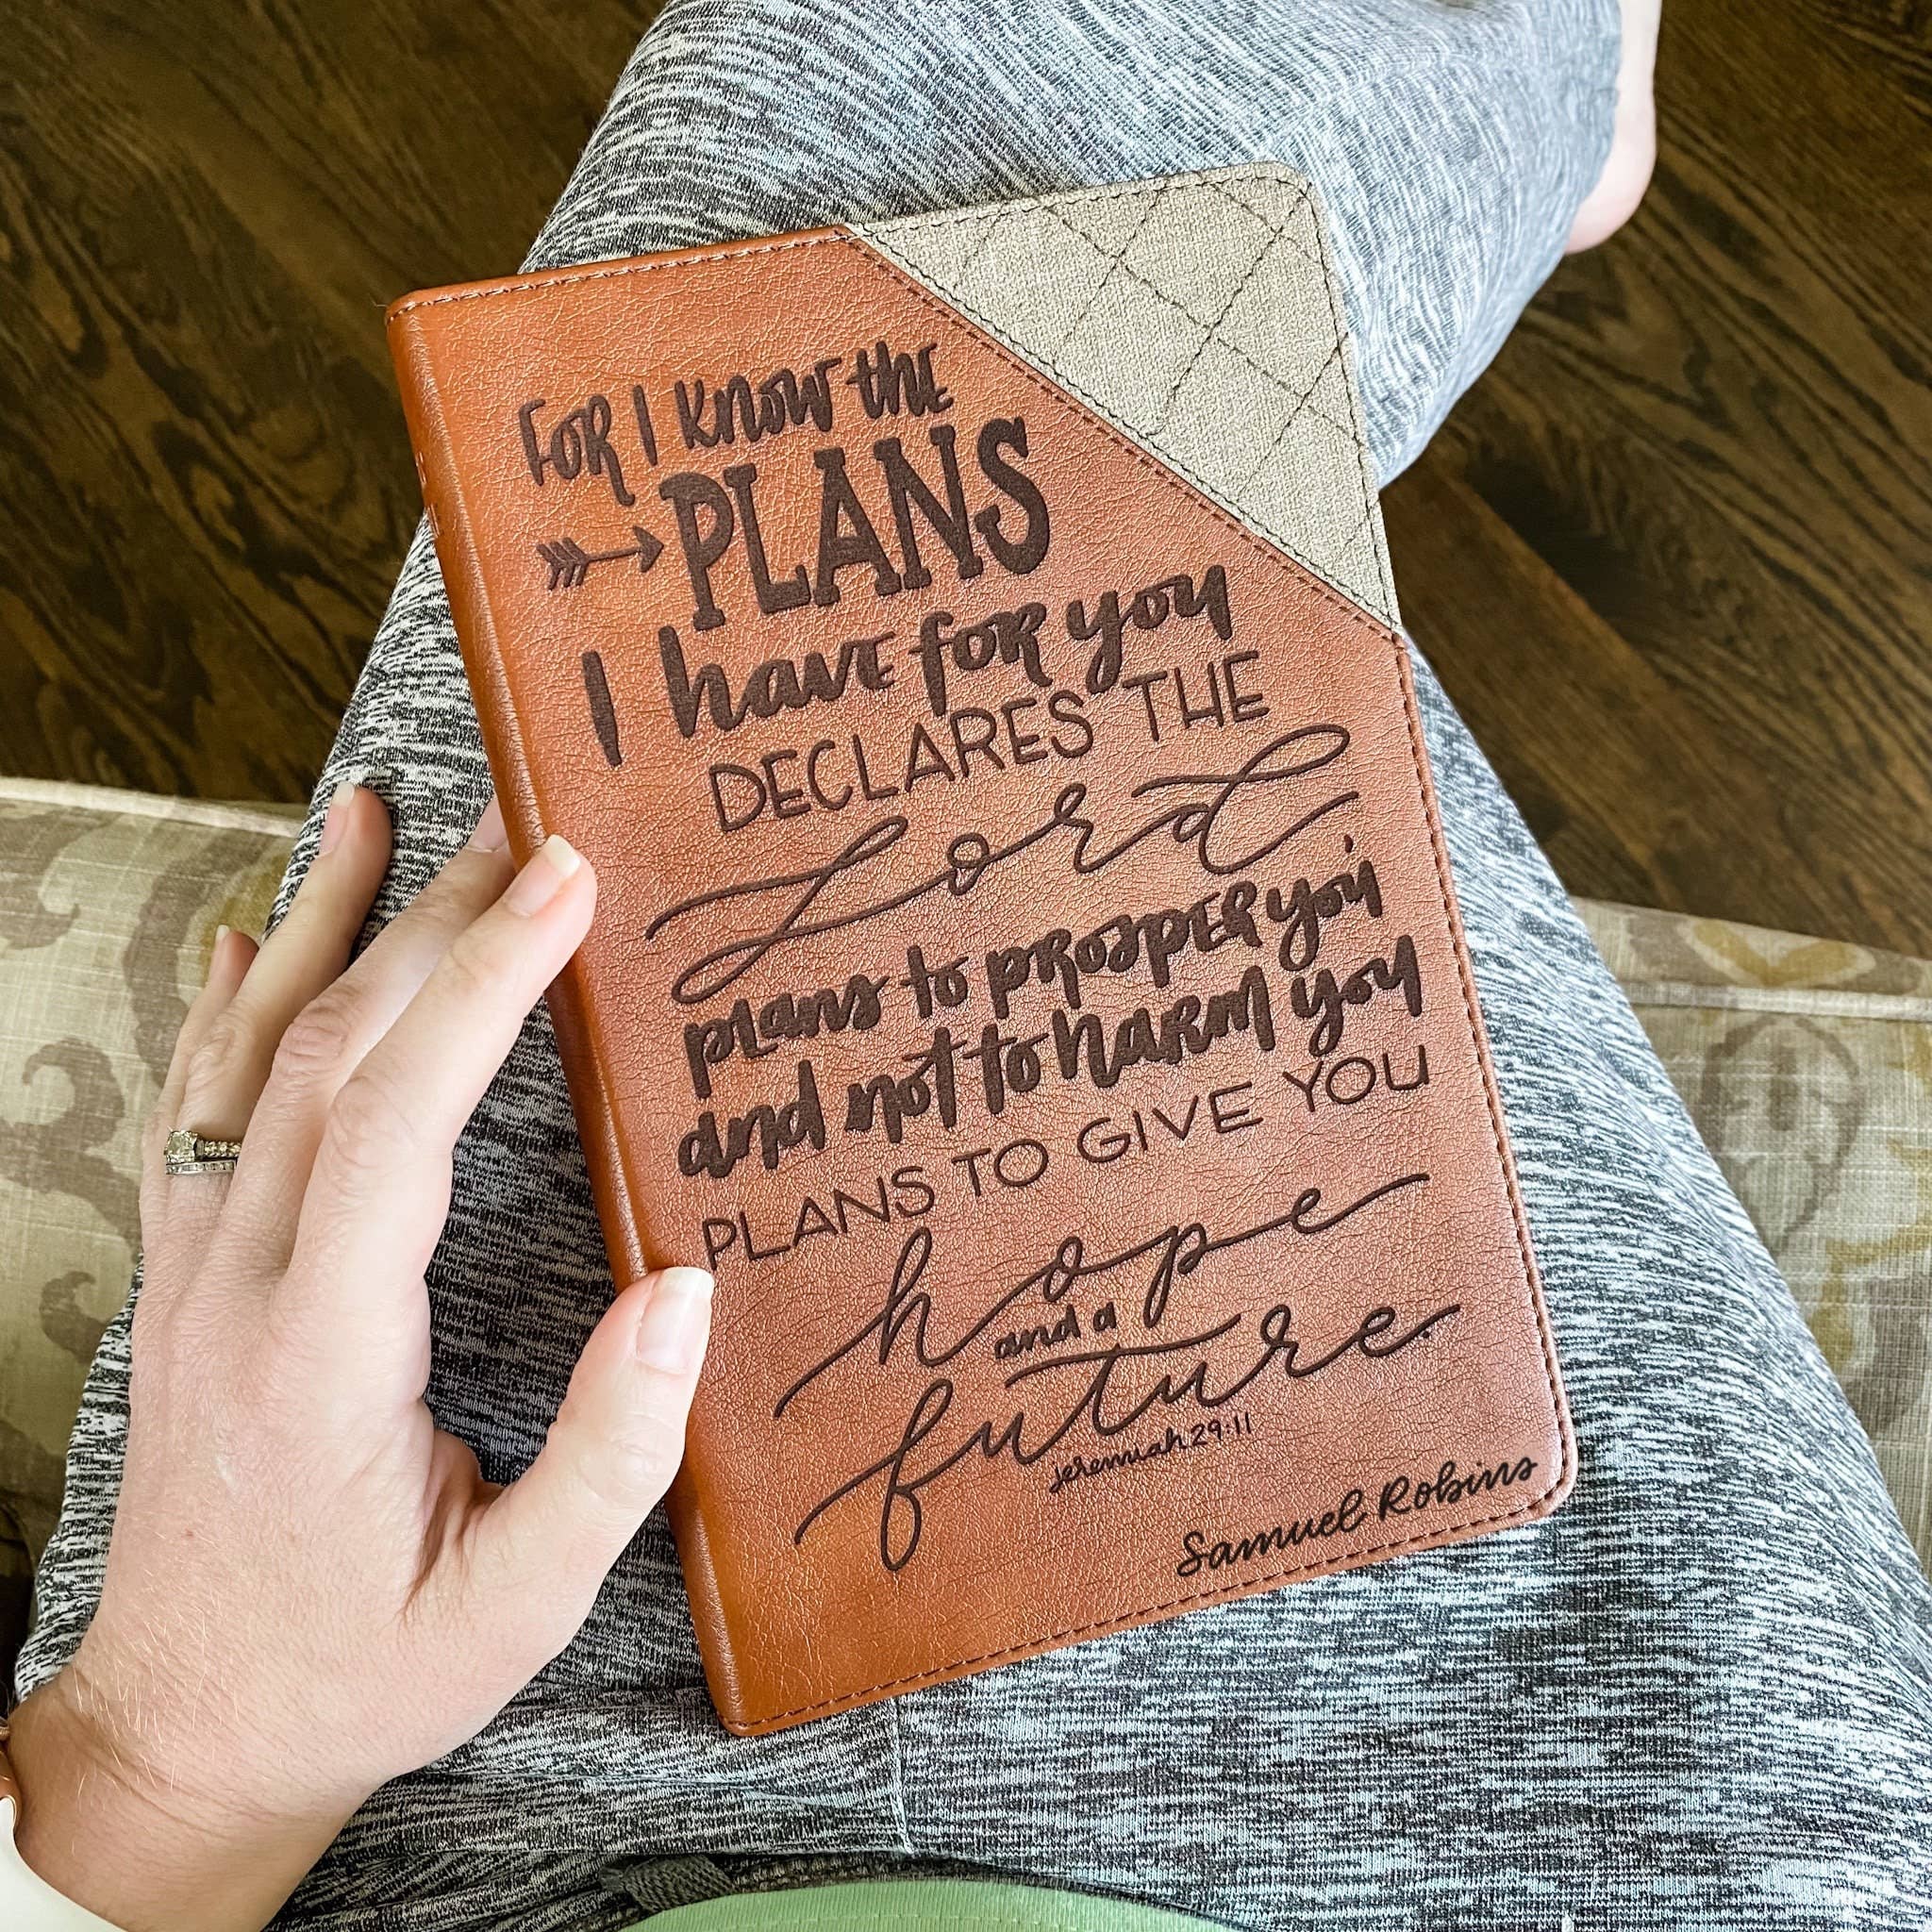 FOR I KNOW the
PLANS
I have for you
DECLARES THE
Lord
plans to prosper you,
and not to harm you
PLANS TO GIVE YOU
hope
and a
future.
jeremiah 29:11
Samuel Robins